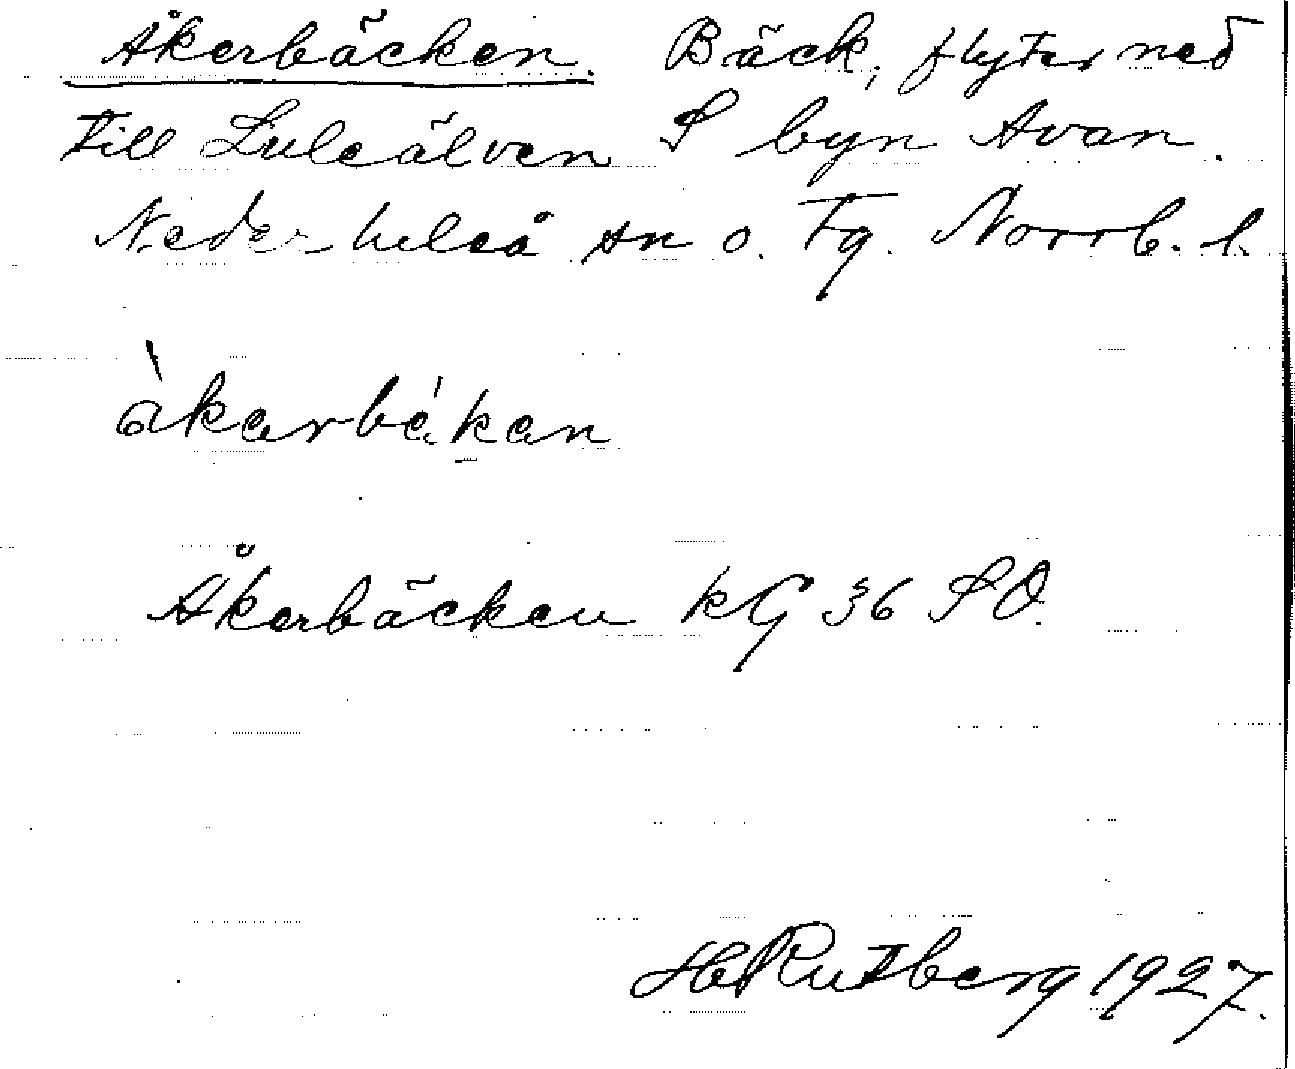 Åkerbäcken. Bäck, flyter ned
till Luleälven S byn Avan.
Nederluleå sn o. Tg. Norrb. l.
åkarbäkan
Åkerbäcken kG 36 SO.
H Rutberg 1927.